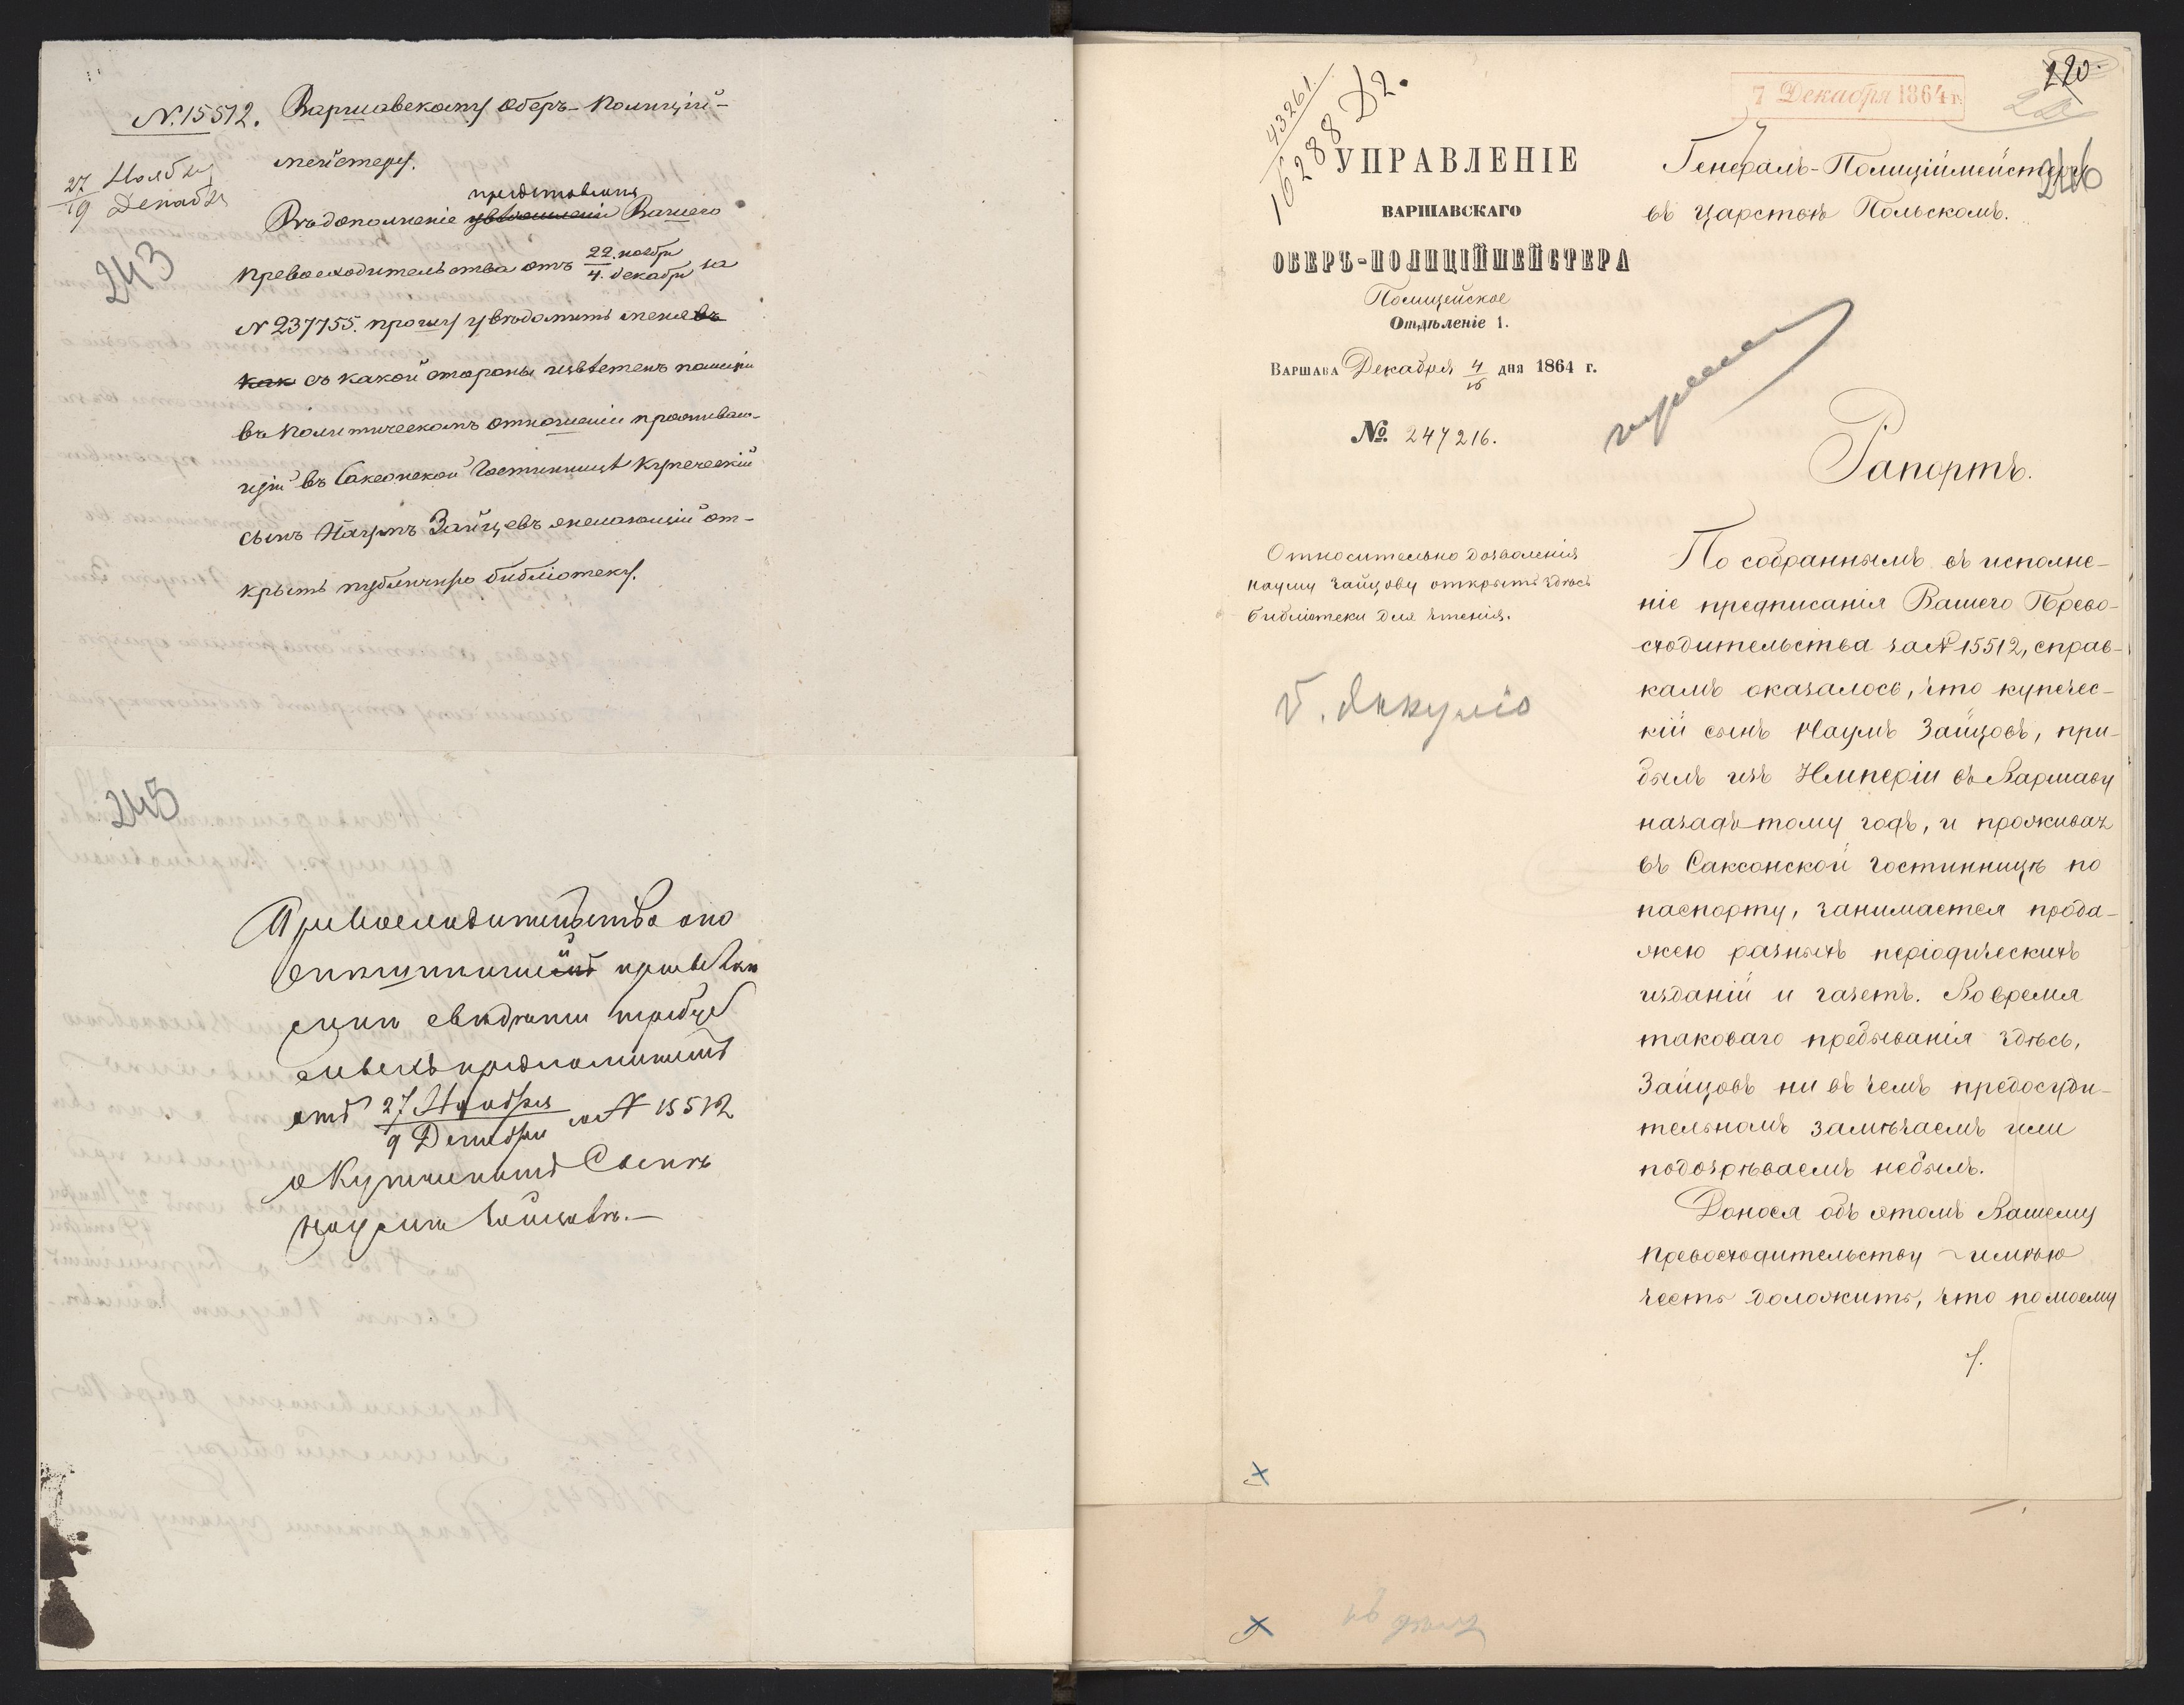 № 15512. Варшавскому Оберъ-Полицій-
мейстеру.
27 Ноября
9 Декабря
243
представленія
Въ дополненіе увѣдомленія Вашего
Превосходительства отъ 22 ноября
4 декабря за
№ 237755. прошу увѣдомить меня въ
как съ какой стороны извѣстенъ полиціи
въ политическомъ отношеніи проживаю-
щій въ Саксонской Гостинницѣ Купеческій
сынъ Наумъ Зайцевъ желающій от-
крыть публичную библіотеку.
245
Превосходительство о
свѣдѣнія
отъ 27 Ноября
9 Декабря за № 15512
о Купеческомъ Сынѣ
Наумѣ Зайцевѣ.—
43261
16288 Д2.
220.
22
7 Декабря 1864 г.
246
УПРАВЛЕНІЕ
ВАРШАВСКАГО
ОБЕРЪ-ПОЛИЦІЙМЕЙСТЕРА
Полицейское
Отдѣленіе 1.
ВАРШАВА Декабря 4
16 дня 1864 г.
№ 247216.
Относительно дозволенія
Науму Зайцову открыть здѣсь
библіотеки для чтенія.
Генералъ-Полиціймейстеру
въ Царствѣ Польскомъ.
Рапортъ.
По собраннымъ въ исполне-
ніе предписанія Вашего Прево-
сходительства за № 15512, справ-
камъ оказалось, что купечес-
кій сынъ Наумъ Зайцовъ, при-
былъ изъ Имперіи въ Варшаву
назадъ тому годъ, и проживая
въ Саксонской гостинницѣ по
паспорту, занимается прода-
жею разныхъ періодическихъ
изданій и газетъ. Во время
таковаго пребыванія здѣсь,
Зайцовъ ни въ чемъ предосуди-
тельномъ замѣчаемъ или
подозрѣваемъ небылъ.
Донося объ этомъ Вашему
Превосходительству имѣю
честь доложить, что по моему